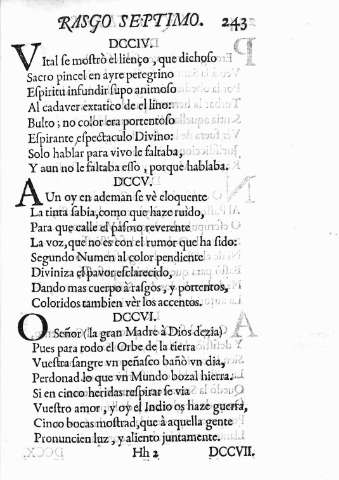 RASGO SEPTIMO. 243
DCCIV.
VItal se mostrò el lienço, que dichoso
Sacro pincel en ayre peregrino
Espiritu infundir supo animoso
Al cadaver extatico de el lino:
Bulto; no color era portentoso
Espirante espectaculo Divino:
Solo hablar para vivo le faltaba,
Y aun no le faltaba esso, porque hablaba.
DCCV.
AUn oy en ademan se vè eloquente
La tinta sabia, como que haze ruido,
Para que calle el pasmo reverente
La voz, que no es con el rumor que ha sido:
Segundo Numen al color pendiente
Diviniza el pavor esclarecido,
Dando mas cuerpo à rasgos, y portentos,
Coloridos tambien vèr los accentos.
DCCVI.
O Señor (la gran Madre à Dios dezia)
Pues para todo el Orbe de la tierra
Vuestra sangre vn peñasco bañò vn dia,
Perdonad lo que vn Mundo bozal hierra.
Si en cinco heridas respirar se via
Vuestro amor, y oy el Indio os haze guerra,
Cinco bocas mostrad, que à aquella gente
Pronuncien luz, y aliento juntamente.
Hh 2 DCCVII.